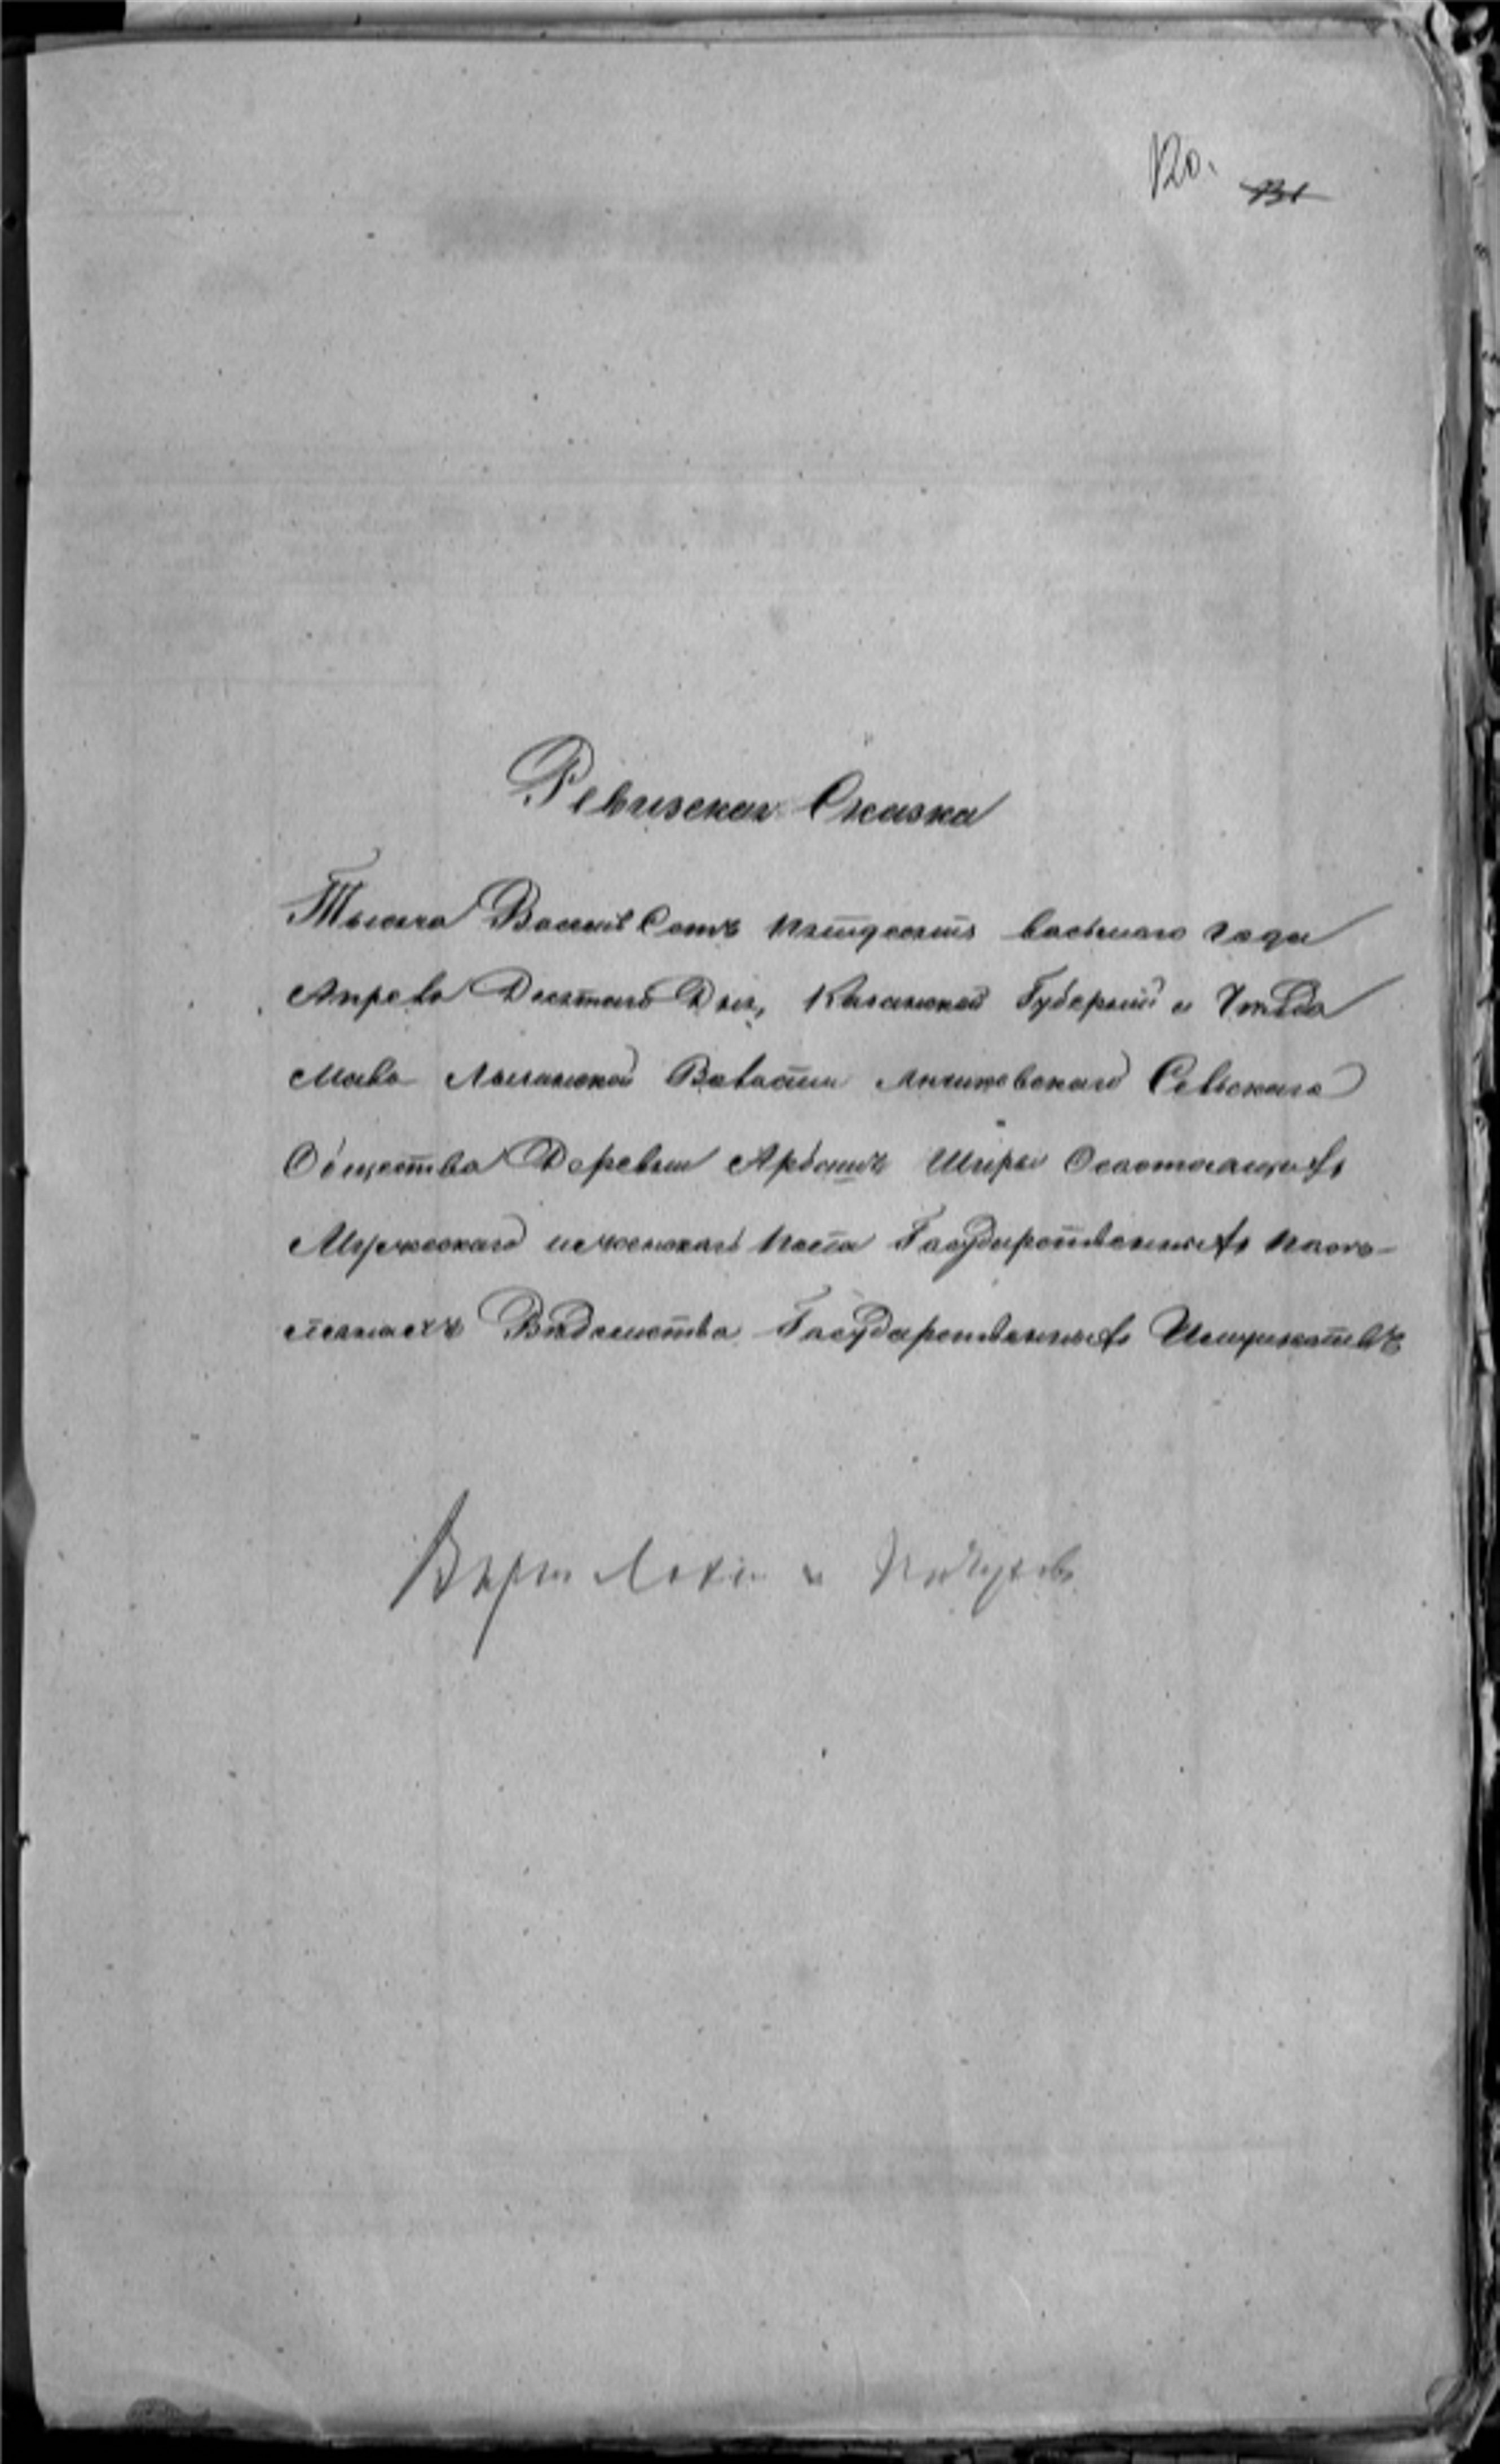 120. 131
Ревизская Сказка
Тысяча Восемь Сотъ пятдесятъ восьмаго года
Апреля Десятаго Дня, Казанской Губернии и Уезда
Мало Лызинской Волости Сельскаго
Общества Деревни Арбашъ Ширы О состоящихъ
Мужескаго и женскаго пола Государственныхъ
Ведомства Государственныхъ Имуществъ